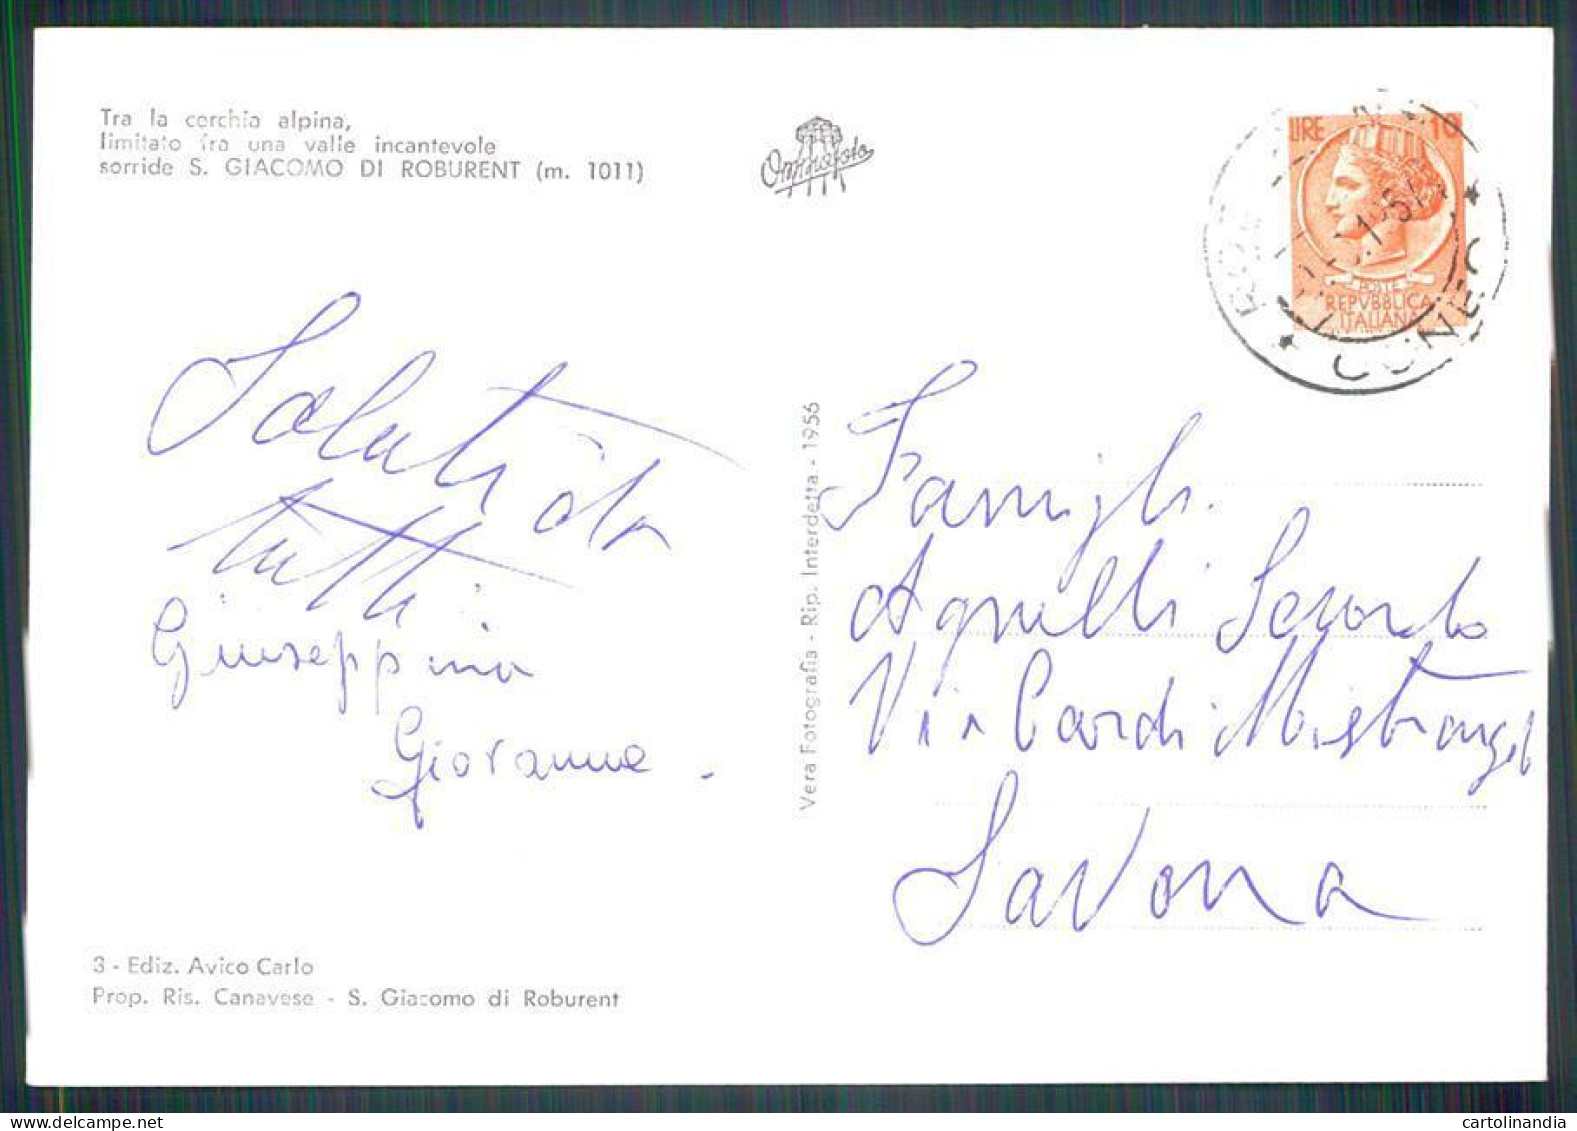 Tra la cerchia alpina,
limitato fra una valle incantevole
sorride S. GIACOMO DI ROBURENT (m. 1011)
Omniafoto
LIRE 10
POSTE
REPVBBLICA
ITALIANA
CUNEO
Saluti da
tutti
Giuseppina
Giovanna.
Vera Fotografia - Rip. Interdetta - 1956
Famigli.
Agnelli Secondo
Via Cardi Mistrangelo
Savona
3 - Ediz. Avico Carlo
Prop. Ris. Canavese - S. Giacomo di Roburent
cartolinandia